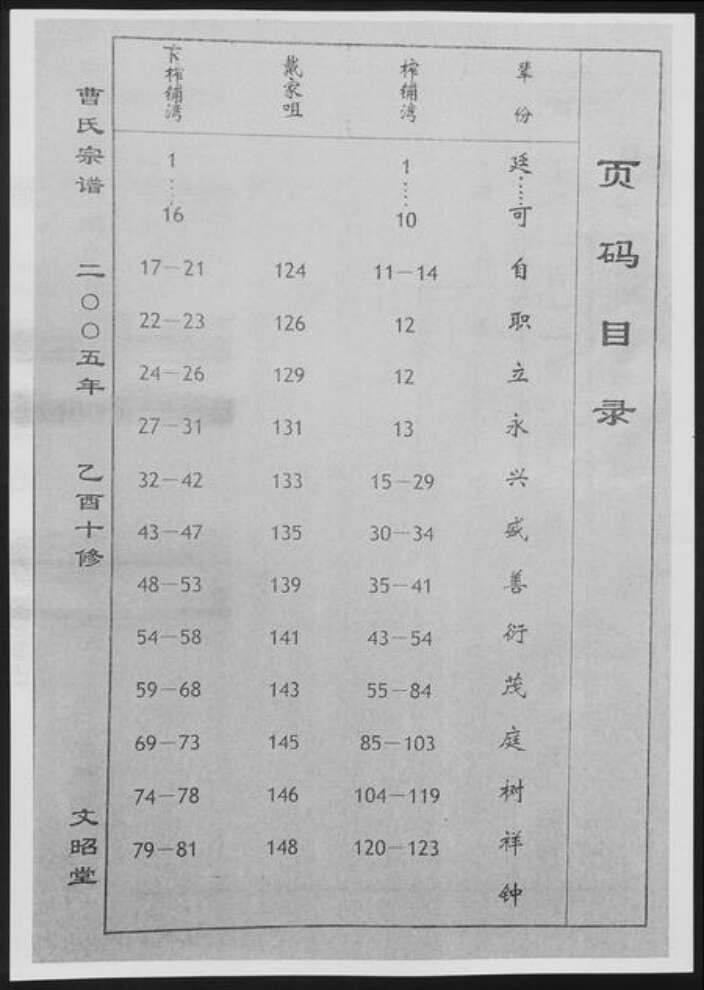 页码目录
辈份 榨铺湾 戴家咀 下榨铺湾
廷……可 1……10 1……16
自 11—14 124 17—21
职 12 126 22—23
立 12 129 24—26
永 13 131 27—31
兴 15—29 133 32—42
盛 30—34 135 43—47
善 35—41 139 48—53
衍 43—54 141 54—58
茂 55—84 143 59—68
庭 85—103 145 69—73
树 104—119 146 74—78
祥 120—123 148 79—81
钟
曹氏宗谱 二〇〇五年 乙酉十修 文昭堂